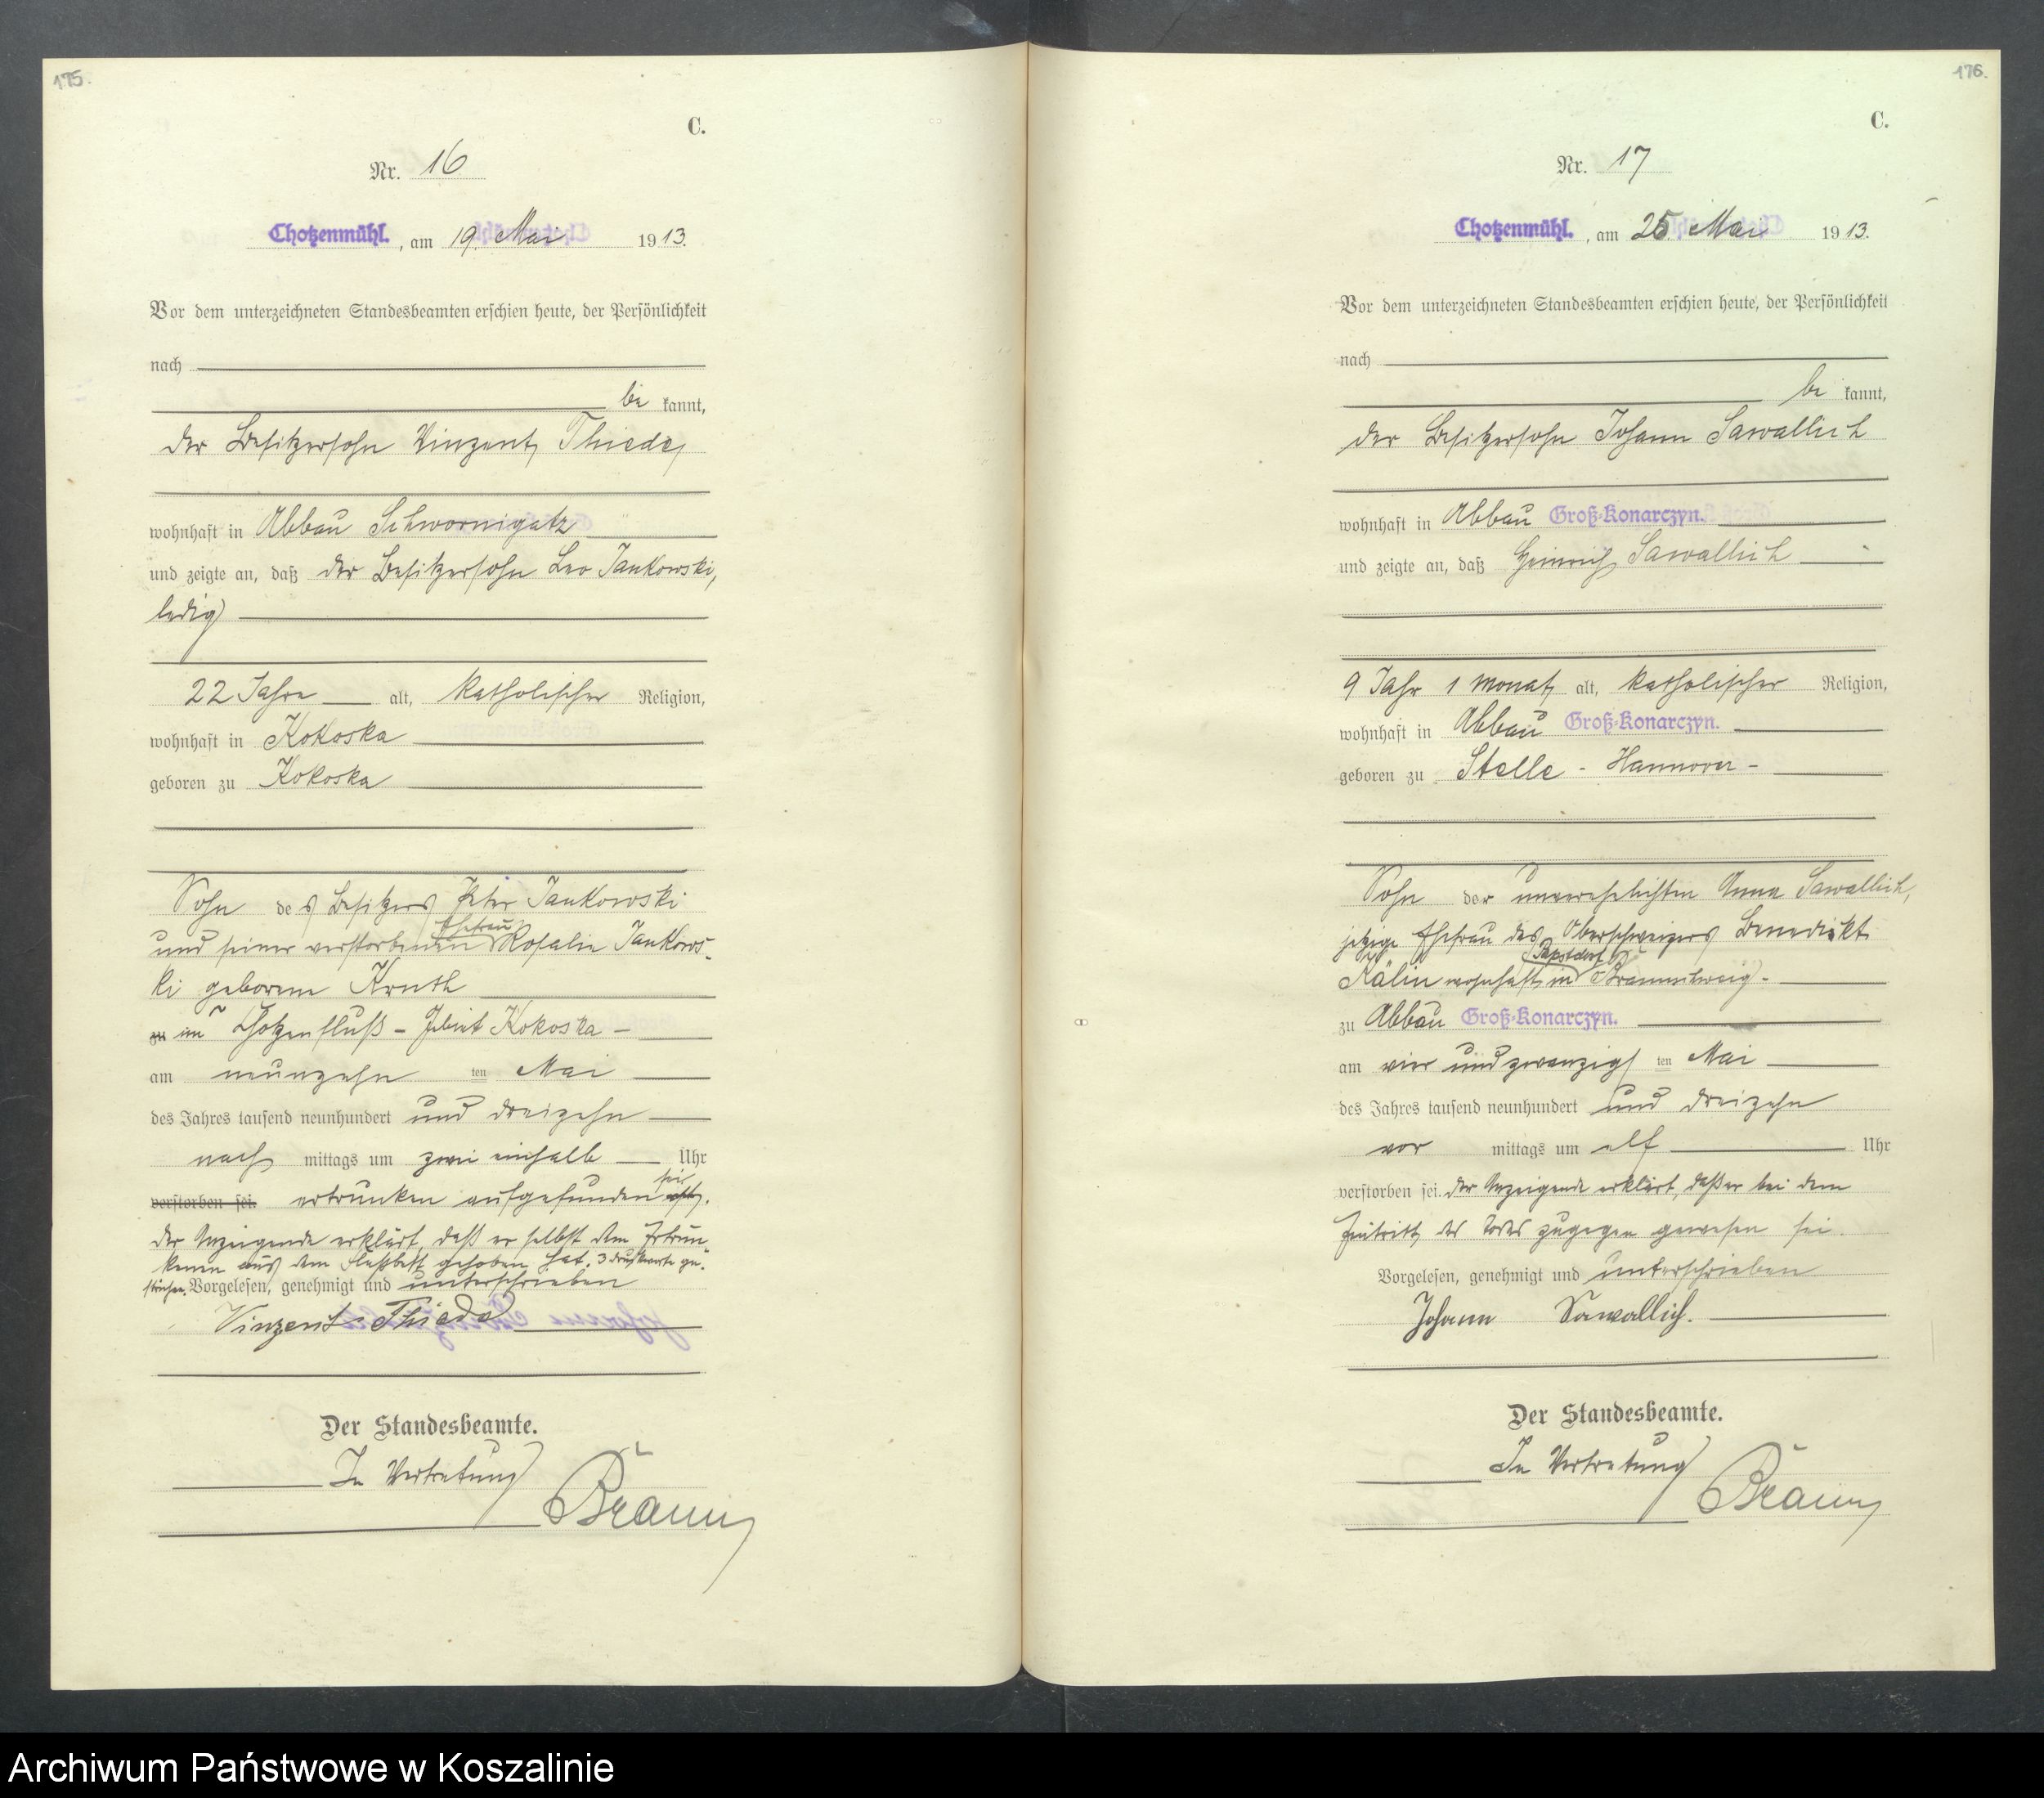 175.
C.
Nr. 16
Chotzenmühl., am 19. Mai 1913.
Vor dem unterzeichneten Standesbeamten erschien heute, der Persönlichkeit
nach
be kannt,
der Besitzersohn Vinzent Thiede,
wohnhaft in Abbau Schwornigatz
und zeigte an, daß der Besitzersohn Leo Jankowski,
ledig
22 Jahre alt, katholischer Religion,
wohnhaft in Kokoska
geboren zu Kokoska
Sohn des Besitzers Peter Jankowski
Ehefrau
und seiner verstorbenen Rosalie Jankows-
ki geborene Knuth
zu im Chotzenfluß - Gebiet Kokoska -
am neunzehn ten Mai
des Jahres tausend neunhundert und dreizehn
nach mittags um zwei einhalb Uhr
sei
verstorben sei. ertrunken aufgefunden
der Anzeigende erklärt, daß er selbst den Ertrun-
kenen aus dem Flußbett gehoben hat. 3 Druckworte ge-
strichen. Vorgelesen, genehmigt und unterschrieben
Vinzent Thiede
Der Standesbeamte.
In Vertretung
Braun
176.
C.
Nr. 17
Chotzenmühl., am 25. Mai 1913.
Vor dem unterzeichneten Standesbeamten erschien heute, der Persönlichkeit
nach
be kannt,
der Besitzersohn Johann Sawallich
wohnhaft in Abbau Groß-Konarczyn.
und zeigte an, daß Heinrich Sawallich
9 Jahr 1 Monat alt, katholischer Religion,
wohnhaft in Abbau Groß-Konarczyn.
geboren zu Stelle - Hannover -
Sohn der unverehelichten Anna Sawallich,
jetzige Ehefrau des Oberschweizers Benedikt
Kälin wohnhaft in Braunschweig.
zu Abbau Groß-Konarczyn.
am vier und zwanzigs ten Mai
des Jahres tausend neunhundert und dreizehn
vor mittags um elf Uhr
verstorben sei. der Anzeigende erklärt, daß er bei dem
Eintritt des Todes zugegen gewesen sei.
Vorgelesen, genehmigt und unterschrieben
Johann Sawallich.
Der Standesbeamte.
In Vertretung
Braun
Archiwum Państwowe w Koszalinie